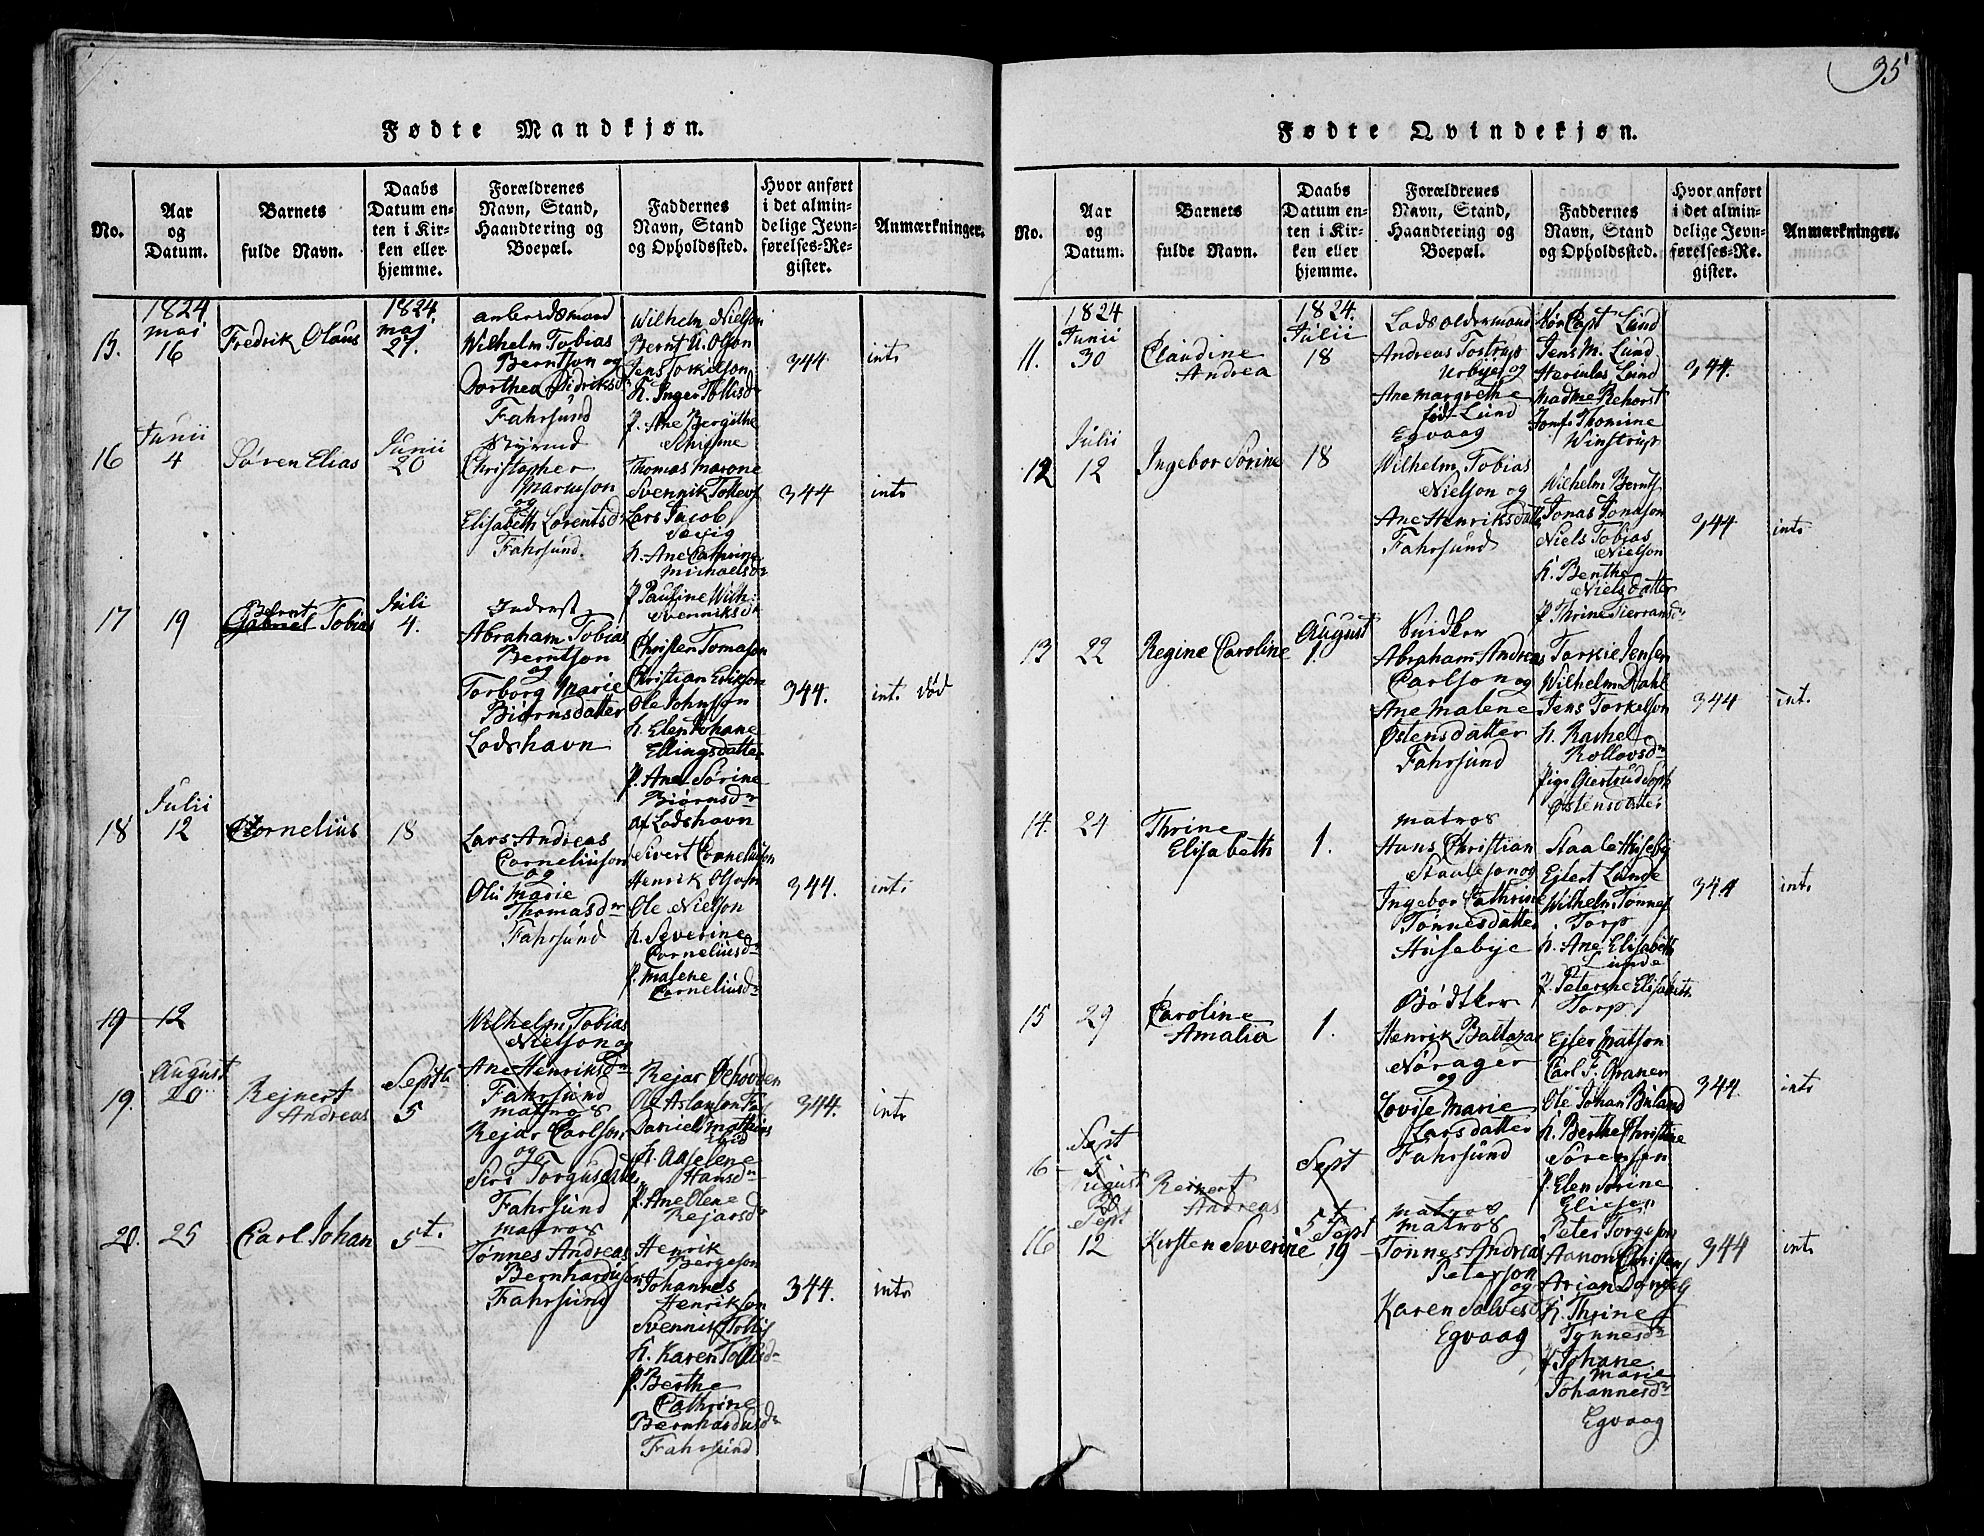 35
Fødte Mandkjøn.
No.
Aar
og
Datum.
Barnets
fulde Navn.
Daabs
Datum en-
ten i Kir-
ken eller
hjemme.
Forældrenes
Navn, Stand,
Haandtering og
Boepæl.
Faddernes
Navn, Stand
og Opholdssted.
Hvor anført
i det almin-
delige Jevn-
førelses-Re-
gister.
Anmærkninger.
1824
maj
16
Fredrik Olaus
1824
maj
27.
Wilhelm Tobias
Berntson og
Dorthea
Fahrsund
Wilhelm Nielson
Bernt N. Olson
Jens Torkelson
h. Inger Tollisdr
p. Ane Bergithe
344
int.
16
Junii
4
Søren Elias
Junii
20
Christopher
og
Elisabeth Lorentsdr
Fahrsund.
Thomas Marone
Svennik Tollefs
Lars Jacob
h. Ane Cathrine
Michaelsdr
p. Pauline Wilh:
Svenniksdr
344
int.
17
19
Bernt
Gabriel Tobias
Juli
4.
Inderst
Abraham Tobias
Berntson
og
Torborg Marie
Biørnsdatter
Lodshavn
Christen Tomason
Christian Erikson
Ole Johnson
h. Elen Johane
Ellingsdatter
p. Ane Sørine
Biørnsdr
af Lodshavn
344.
int. død
18
Julii
12
Cornelius
18
Lars Andreas
Corneliuson
og
Marie
Thomasdr
Fahrsund
Sivert Corneliuson
Henrik Olson
Ole Nielson
h. Severine
Corneliusdr
p. Malene
Corneliusdr
344.
int.
19
12
Wilhelm Tobias
Nielson og
Ane Henriksdr
Fahrsund
19.
August
20
Rejnert
Andreas
Septb
5
matros
Rejar Carlson
og
Siri
Fahrsund
Rejar
Ole Aslakson
Daniel
h. Aaselene
Hansdr
p. Ane Olene
Rejarsdr
344.
int.
20.
25
Carl Johan
5t.
matros
Tønnes Andreas
Bernhardusson
Fahrsund
Henrik
Johannes
Henrikson
Svennik Tollis
h. Karen Tollisdr
p. Berthe
Cathrine
Bernhardusdr
Fahrsund
344.
int.
Fødte Qvindekjøn.
No.
Aar
og
Datum.
Barnets
fulde Navn.
Daabs
Datum en-
ten i Kir-
ken eller
hjemme.
Forældrenes
Navn, Stand,
Haandtering og
Boepæl.
Faddernes
Navn, Stand
og Opholdssted.
Hvor anført
i det almin-
delige Jevn-
førelses-Re-
gister.
Anmærkninger.
11.
1824
Junii
30
Claudine
Andrea
1824.
Julii
18
Lodsoldermand
Andreas Tostrup
Urbye og
Ane Margrethe
født Lund
Egvaag
Capt Lund
Jens M. Lund
Herculas Lund
Madme Rehorst
Jomf. Thomine
Winstrup
344.
12
Julii
12
Ingebor Sørine
18
Wilhelm Tobias
Nielson og
Ane Henriksdatter
Fahrsund
Wilhelm Bernts
Jonas Jonason
Niels Tobias
Nielson
h. Benthe
Nielsdatter
p. Thrine
344
int.
13
22
Regine Caroline
August
1.
Snidker
Abraham Andreas
Carlson og
Ane Malene
Østensdatter
Fahrsund
Torkie Jensen
Wilhelm Dahl
Jens Torkelson
h. Rachel
Rollovsdr
Pige Giertrud Soph
Østensdatter
344
int.
14.
24
Thrine
Elisabeth
1.
matros
Hans Christian
Staaleson og
Ingebor Cathrine
Tønnesdatter
Husebye
Staale Huseby
Ejlert Lunde
Wilhelm Tønnes
Torp
h. Ane Elisabeth
Lunde
p. Peterine Elisabeth
Torp
344
int.
15
29
Caroline
Amalia
1.
Bødtker
Henrik Baltazar
Nørager
og
Lovise Marie
Larsdatter
Fahrsund
Ejler Matson
Carl F. Graner
Ole Johan Biuland
h. Berthe Christine
Sørensen
p. Elen Sørine
Eliesen
344
int.
16
Sept
August
Reinert
Andreas
Sept
5t
matros
16
Sept
12
Kirsten Severine
Sept
19
matros
Tønnes Andreas
Peterson
og
Karen Salvesd
Egvaag
Peter Torgeson
Aanon Christens
Arian
h. Thrine
Tønnesdr
p. Johane
Marie
Johannesdr
Egvaag
344
int.